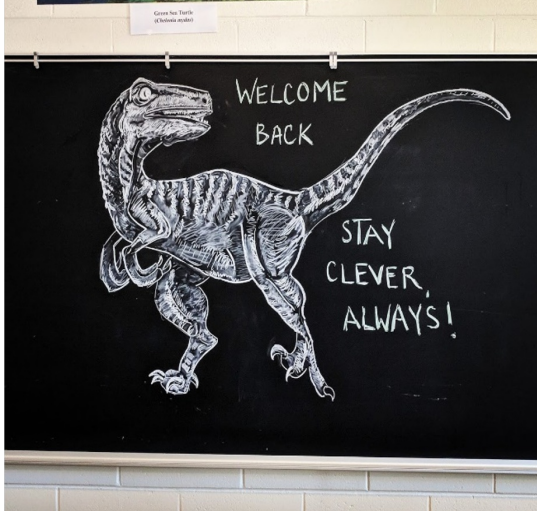 Green Sea Turtle
(Chelonia mydas)
WELCOME
BACK
STAY
CLEVER,
ALWAYS!